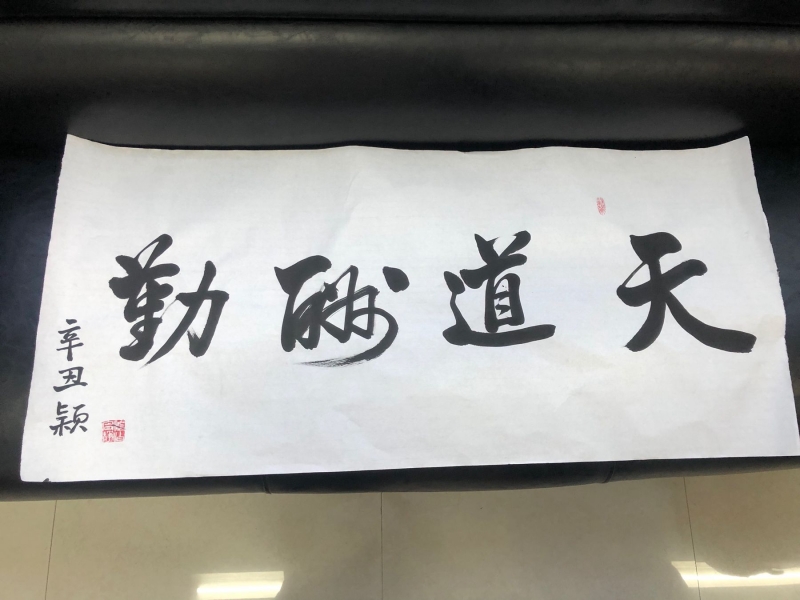 天道酬勤
辛丑
颖